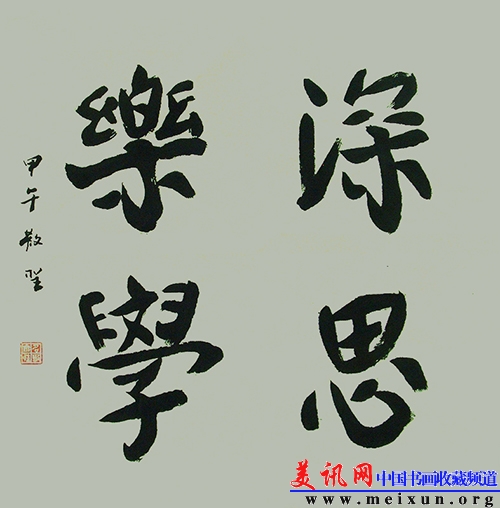 深思
樂學
甲午
美讯网 中国书画收藏频道
www.meixun.org